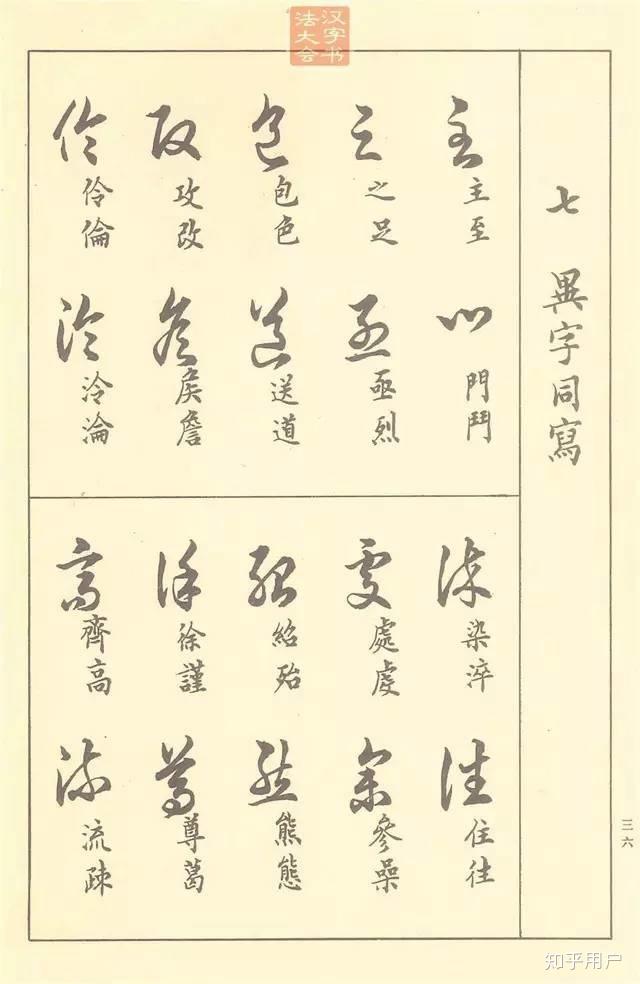 汉字书
法大会
七 異字同寫
主至
之足
包色
攻改
伶倫
門鬥
亟烈
送道
侯詹
泠淪
染淬
處虔
紹殆
徐謹
齊高
住往
參喿
熊態
尊葛
流疎
三六
知乎用户